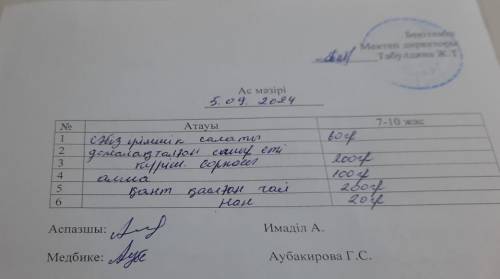 Бекітемін
Мектеп директоры
Табулдина Ж.Т
Ас мәзірі
5.09.2024
№ Атауы 7-10 жас
1 сәбіз ірімшік салаты 60гр
2 домалақталған сиыр еті
3 күріш 200гр
4 алма 100гр
5 қант қосылған чай 200гр
6 нан 20гр
Аспазшы: Имаділ А.
Медбике: Аубакирова Г.С.